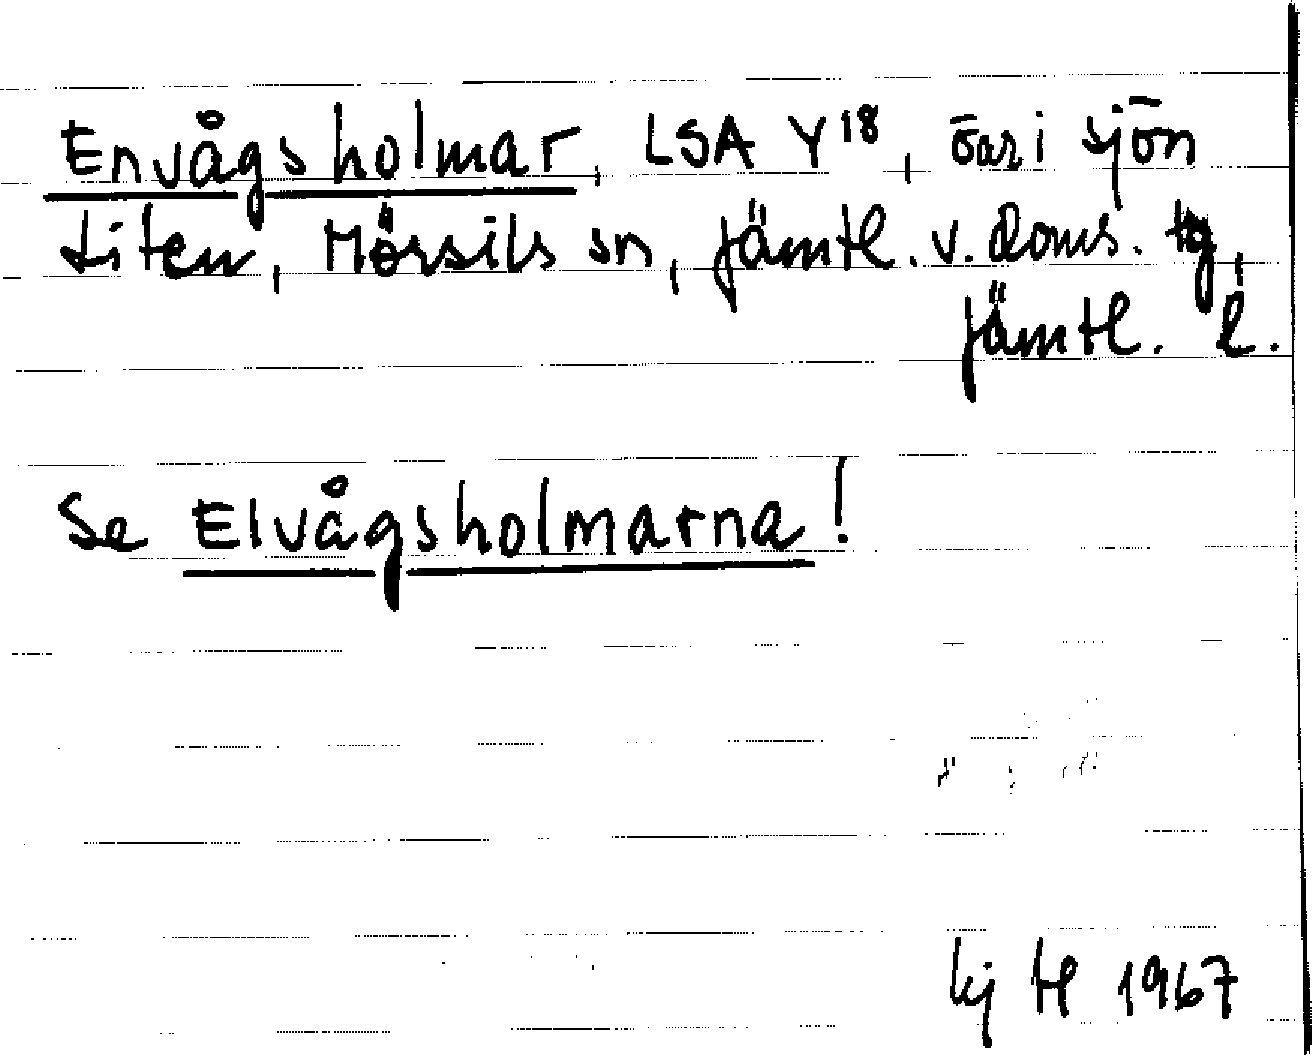 Envågsholmar, LSA Y18, öar i sjön
Liten, Mörsils sn, Jämtl. v. doms. tg,
Jämtl. l.
Se Elvågsholmarna!
1967